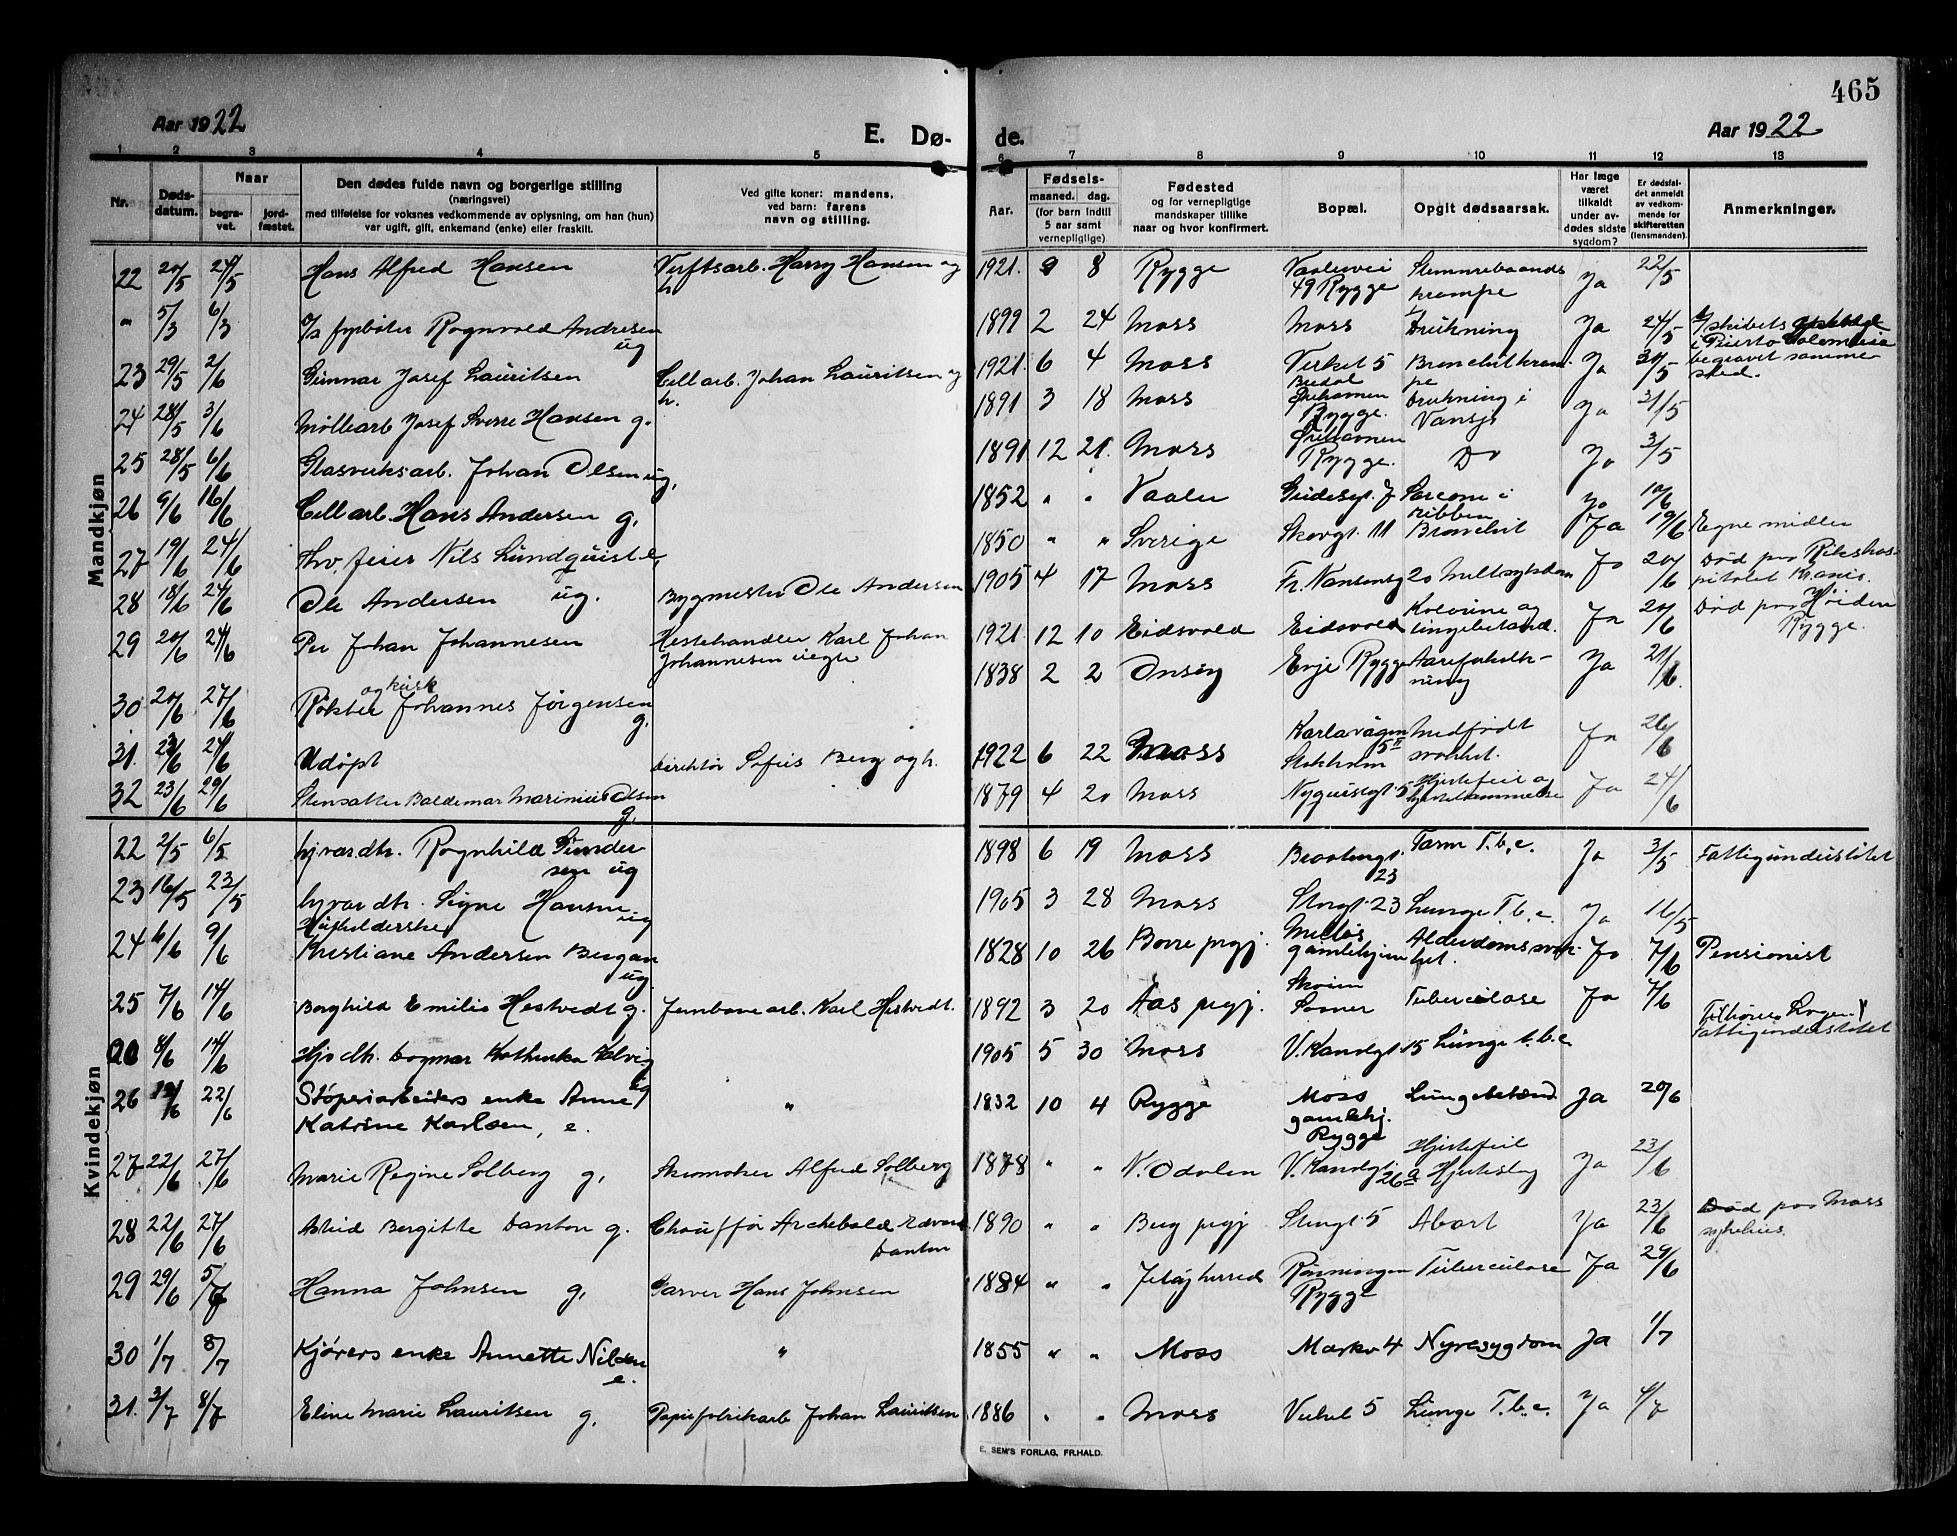 465
Aar 1922
E. Dø- de.
Aar 1922
1 2 3 4 5 6 7 8 9 10 11 12 13
Nr.
Døds-
datum.
Naar
begra-
vet.
jord-
fæstet.
Den dødes fulde navn og borgerlige stilling
(næringsvei)
med tilføielse for voksnes vedkommende av oplysning, om han (hun)
var ugift, gift, enkemand (enke) eller fraskilt.
Ved gifte koner: mandens,
ved barn: farens
navn og stilling.
Aar.
Fødsels-
maaned. dag.
(for barn indtil
5 aar samt
vernepligtige)
Fødested
og for vernepligtige
mandskaper tillike
naar og hvor konfirmert.
Bopæl.
Opgit dødsaarsak.
Har læge
været
tilkaldt
under av-
dødes sidste
sygdom?
Er dødsfal-
det anmeldt
av vedkom-
mende for
skifteretten
(lensmanden).
Anmerkninger.
Mandkjøn
22 20/5 24/5 Hans Alfred Hansen Verftsarb. Harry Hansen og h. 1921. 9 8 Rygge Vaalervei 49 Rygge Stemmebaands krampe Ja 22/5
" 5/3 6/3 fyrbøter Ragnvald Andresen ug 1899 2 24 Moss Moss Drukning Ja 24/5 begravet samme sted.
23 29/5 2/6 Gunnar Josef Lauritsen Cell arb. Johan Lauritsen og h. 1921. 6 4 Moss Verket 5 Bronchitkram pe Ja 30/5
24 28/5 3/6 Møllearb Josef Sverre Hansen g. 1891 3 18 Moss Rygge. Drukning i Vansjø Ja 31/5
25 28/5 6/6 Glasverksarb. Johan Olsen ug. 1891 12 21. Moss Rygge. Do Ja 3/5
26 9/6 16/6 Cell arb. Hans Andersen g. 1852 " " Vaaler Gudesgt. 7 Sarcom i ribben Ja 10/6
27 19/6 24/6 Nils Lundquist e. 1850 " " Sverige Skovgt. 11 Bronchit Ja 19/6 Egne midler
28 18/6 24/6 Ole Andersen ug. Bygmester Ole Andersen 1905 4 17 Moss Fr. Nansensg 20 Miltsykdom Ja 20/6 Død paa Rikshos- pitalet Krania.
29 20/6 24/6 Per Johan Johannesen Hestehandler Karl Johan Johannesen uegte 1921. 12 10 Eidsvold Eidsvold Kolerine og lungebetænd. Ja 20/6 Død paa Høiden Rygge.
30 20/6 27/6 Røkter og kusk Johannes Jørgensen g. 1838 2 2 Onsøy Evje Rygge Aareforkalk- ning Ja 21/6.
31. 23/6 24/6 Udøpt Direktør Sofus Berg og h. 1922 6 22 Moss Karlavägen 5 II Stokholm Medfødt svakhet. Ja 26/6
32 23/6 29/6 Stensætter Baldemar Marinius Olsen g. 1879 4 20 Moss Nyquistgt. 5 Hjertefeil og hjertelammelse Ja 24/6
Kvindekjøn
22 2/5 6/5 hjvar dtr. Ragnhild Gunder- sen ug 1898 6 19 Moss 23 Tarm T.b.c. Ja 3/5 Fattigunderstøttet
23 16/5 23/5 hjvar dtr. Signe Hansen ug 1905 3 28 Moss Storgt. 23 Lunge T.b.c. Ja 16/5
24 6/6 9/6 Husholderske Kristiane Andersen Bergan ug. 1828 10 26 Borre prgj. gamlehjem Alderdomssvak- het. Ja 7/6 Pensionist
25 7/6 14/6 Borghild Emilie Hestvedt g. Jernbanearb. Karl Hestvedt. 1892 3 20 Aas prgj. Skoim Somer Tuberculose Ja 7/6
8/6 14/6 Hj. dtr. Dagmar Kathinka Kalvig ug 1905 5 30 Moss V. Kanalgt. 15 Lunge t.b.c. Fattigunderstøttet
26 19/6 22/6 Støperiarbeiders enke Anne Katrine Karlsen, e. " 1832 10 4 Rygge Moss gamlehj. Rygge Lungebetænd. Ja 20/6
27 22/6 27/6 Marie Regine Solberg g. Skomaker Alfred Solberg 1878 " " N. Odalen V. Kanalgt. 26 a Hjertefeil Hjerteslag Ja 23/6
28 22/6 27/6 Astrid Bergitte Danton g. Chauffør Archebald Edvard Danton 1890 " " Berg prgj Storgt. 5 Abort Ja 23/6 Død paa Moss sykehus.
29 29/6 5/7 Hanna Johnsen g. Garver Hans Johnsen 1884 " " Jeløy herred Rønningen Rygge Tuberculose Ja 29/6
30 1/7 8/7 Kjørers enke Annette Nilsen e. " 1855 " " Moss Markv 4 Nyresygdom Ja 1/7
31. 3/7 8/7 Eline Marie Lauritsen g. Papirfabrikarb Johan Lauritsen 1886 " " Moss Verket 5 Lunge T.b.c. Ja 4/7
E. SEM'S FORLAG, FR.HALD.